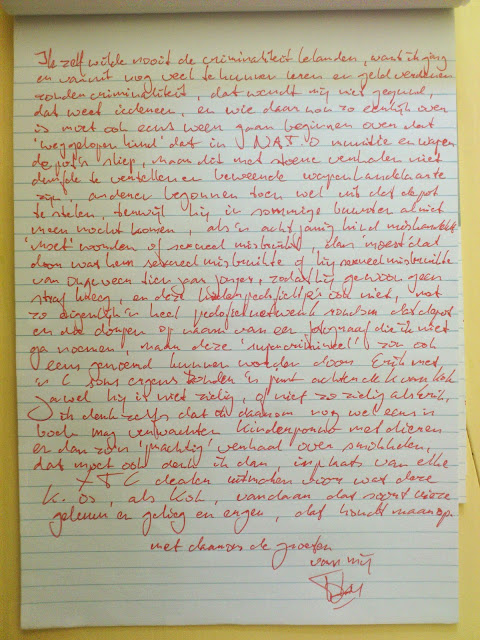 Ik zelf wilde nooit de criminaliteit belanden, want ik ging
er vanuit nog veel te kunnen leren en geld verdienen
zonder criminaliteit, dat wordt mij niet gegund,
dat weet iedereen, en wie daar nou zo eerlijk over
is moet ook eens weer gaan beginnen over dat
'weggelopen kind' dat in NATO munitie en wapen
depots sliep, maar dit met stoere verhalen niet
durfde te vertellen en beweerde
zijn, anderen begonnen toen wel uit dat depot
te stelen, terwijl hij in sommige buurten al niet
meer mocht komen, als 'n acht jarig kind mishandeld
'moet' worden of sexueel misbruikt, dan moest dat
door wat hem sexueel misbruikte of hij sexueel misbruikte
van ongeveer tien jaar jonger, zodat hij gewoon geen
straf kreeg, en deze ook niet, met
zo eigenlijk 'n heel pedofielnetwerk rondom dat depot
en dat dorp en op naam van een fotograaf die ik niet
ga noemen, maar deze 'supercrimineel' zou ook
eens genoemd kunnen worden door Erik met
'n C soms ergens zonder 'n punt achter de K van Kok
Jawel hij is niet zielig, of niet zo zielig als Erik,
ik denk zelfs dat hij daarom nog wel eens 'n
boek mag verwachten kinderporno met dieren
er dan zo'n 'prachtig' verhaal over
dat moet ook denk ik dan, in plaats van elke
XTC dealer uitmoorden voor wat deze
K. os, als Kok, vandaan dat soort
geleuter en gelieg en ergens, dat houdt maar op.
met daarvoor de groeten
van mij